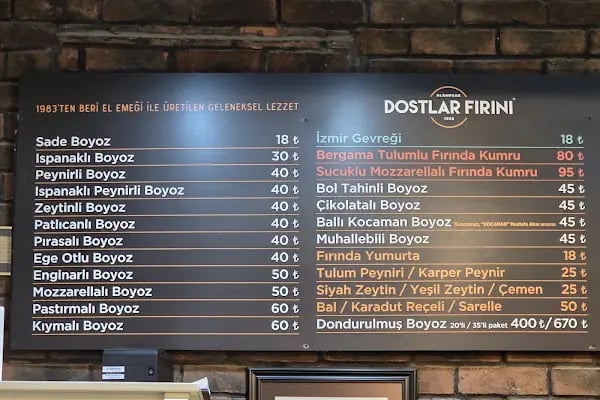 1983'TEN BERİ EL EMEĞİ İLE ÜRETİLEN GELENEKSEL LEZZET
Sade Boyoz 18 ₺
Ispanaklı Boyoz 30 ₺
Peynirli Boyoz 40 ₺
Ispanaklı Peynirli Boyoz 40 ₺
Zeytinli Boyoz 40 ₺
Patlıcanlı Boyoz 40 ₺
Pırasalı Boyoz 40 ₺
Ege Otlu Boyoz 40 ₺
Enginarlı Boyoz 50 ₺
Mozzarellalı Boyoz 50 ₺
Pastırmalı Boyoz 60 ₺
Kıymalı Boyoz 60 ₺
ALSANCAK
DOSTLAR FIRINI
1983
İzmir Gevreği 18 ₺
Bergama Tulumlu Fırında Kumru 80 ₺
Sucuklu Mozzarellalı Fırında Kumru 95 ₺
Bol Tahinli Boyoz 45 ₺
Çikolatalı Boyoz 45 ₺
Ballı Kocaman Boyoz "KOCAMAN" 45 ₺
Muhallebili Boyoz 45 ₺
Fırında Yumurta 18 ₺
Tulum Peyniri / Karper Peynir 25 ₺
Siyah Zeytin / Yeşil Zeytin / Çemen 25 ₺
Bal / Karadut Reçeli / Sarelle 50 ₺
Dondurulmuş Boyoz 20'li / 35'li paket 400 ₺/670 ₺